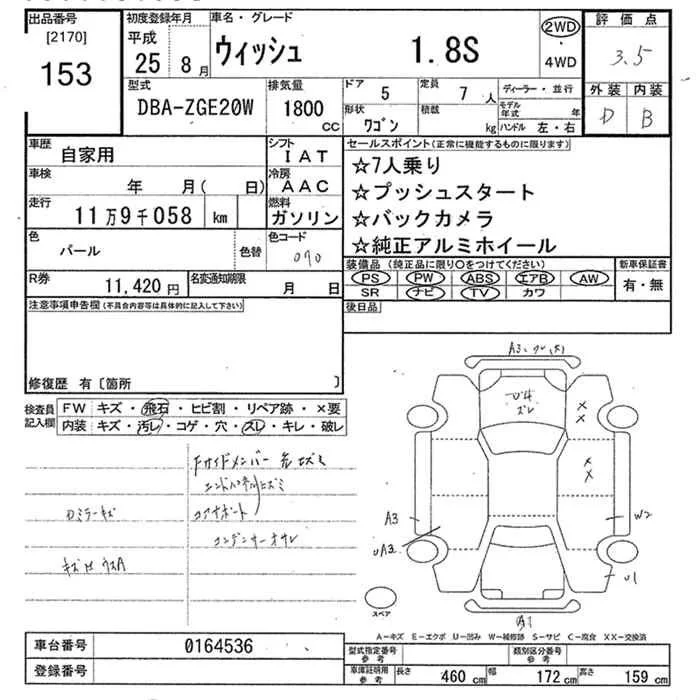 出品番号 初度登録年月 車名・グレード 2WD 評価点
[2170] 平成 ウィッシュ 1.8S ・ 3.5
153 25 8月 4WD
型式 排気量 ドア 5 定員 7人 ディーラー・並行 外装 内装
DBA-ZGE20W 1800cc 形状 ワゴン 積載 kg モデル年式 年 D B
ハンドル 左・右
車歴 自家用 シフト IAT セールスポイント(正常に機能するものに限ります)
車検 年 月( 日) 冷房 AAC ☆7人乗り
走行 11万9千058 km 燃料 ガソリン ☆プッシュスタート
☆バックカメラ
色 パール 色替 色コード 070 ☆純正アルミホイール
R券 11,420円 名変通知期限 月 日 装備品(純正品に限り〇をつけてください) 新車保証書
PS PW ABS エアB AW 有・無
SR ナビ TV カワ
注意事項申告欄(不具合内容等は具体的に記入して下さい) 後日品
修復歴 有〔箇所 〕
検査員記入欄 FW キズ・飛石・ヒビ割・リペア跡・×要
内装 キズ・汚レ・コゲ・穴・スレ・キレ・破レ
Fサイドメンバー
コアサポート
ロミラーキズ
コンデンサーオサレ
A3
U4
ズレ
× ×
× ×
A3 W2
UA3
U1
スペア
A-キズ E-エクボ U-凹み W-補修跡 S-サビ C-腐食 XX-交換済
車台番号 0164536 型式指定番号 参考 類別区分番号 参考
登録番号 車庫証明用 参考 長さ 460cm 幅 172cm 高さ 159cm